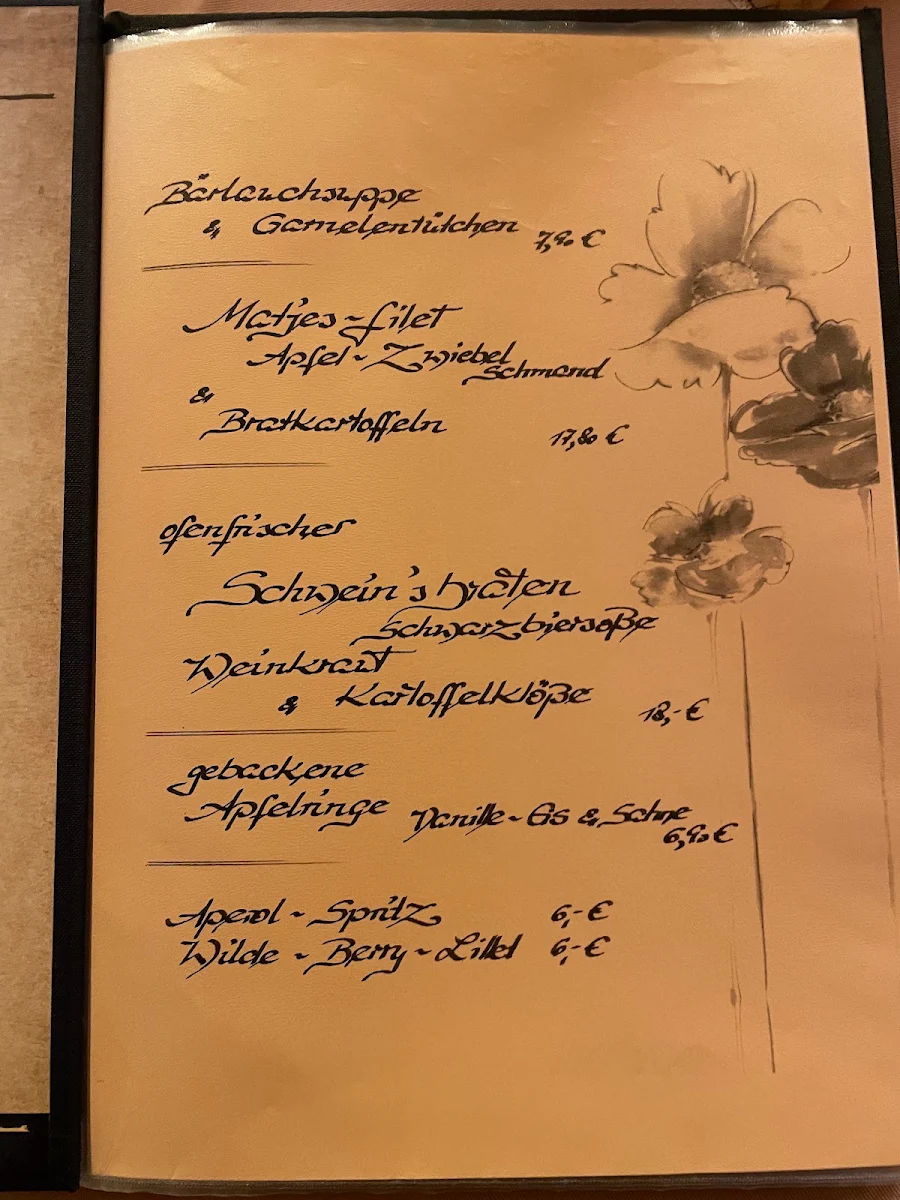 Bärlauchsuppe
& Garnelentütchen 7,90 €
Matjes~filet
Apfel~Zwiebel
Schmand
&
Bratkartoffeln 17,80 €
ofenfrischer
Schwein's braten
Schwarzbiersoße
Weinkraut
& Kartoffelklöße 18,- €
gebackene
Apfelringe Vanille~Eis & Sahne
6,90 €
Aperol ~ Spritz 6,- €
Wilde ~ Berry ~ Lillet 6,- €